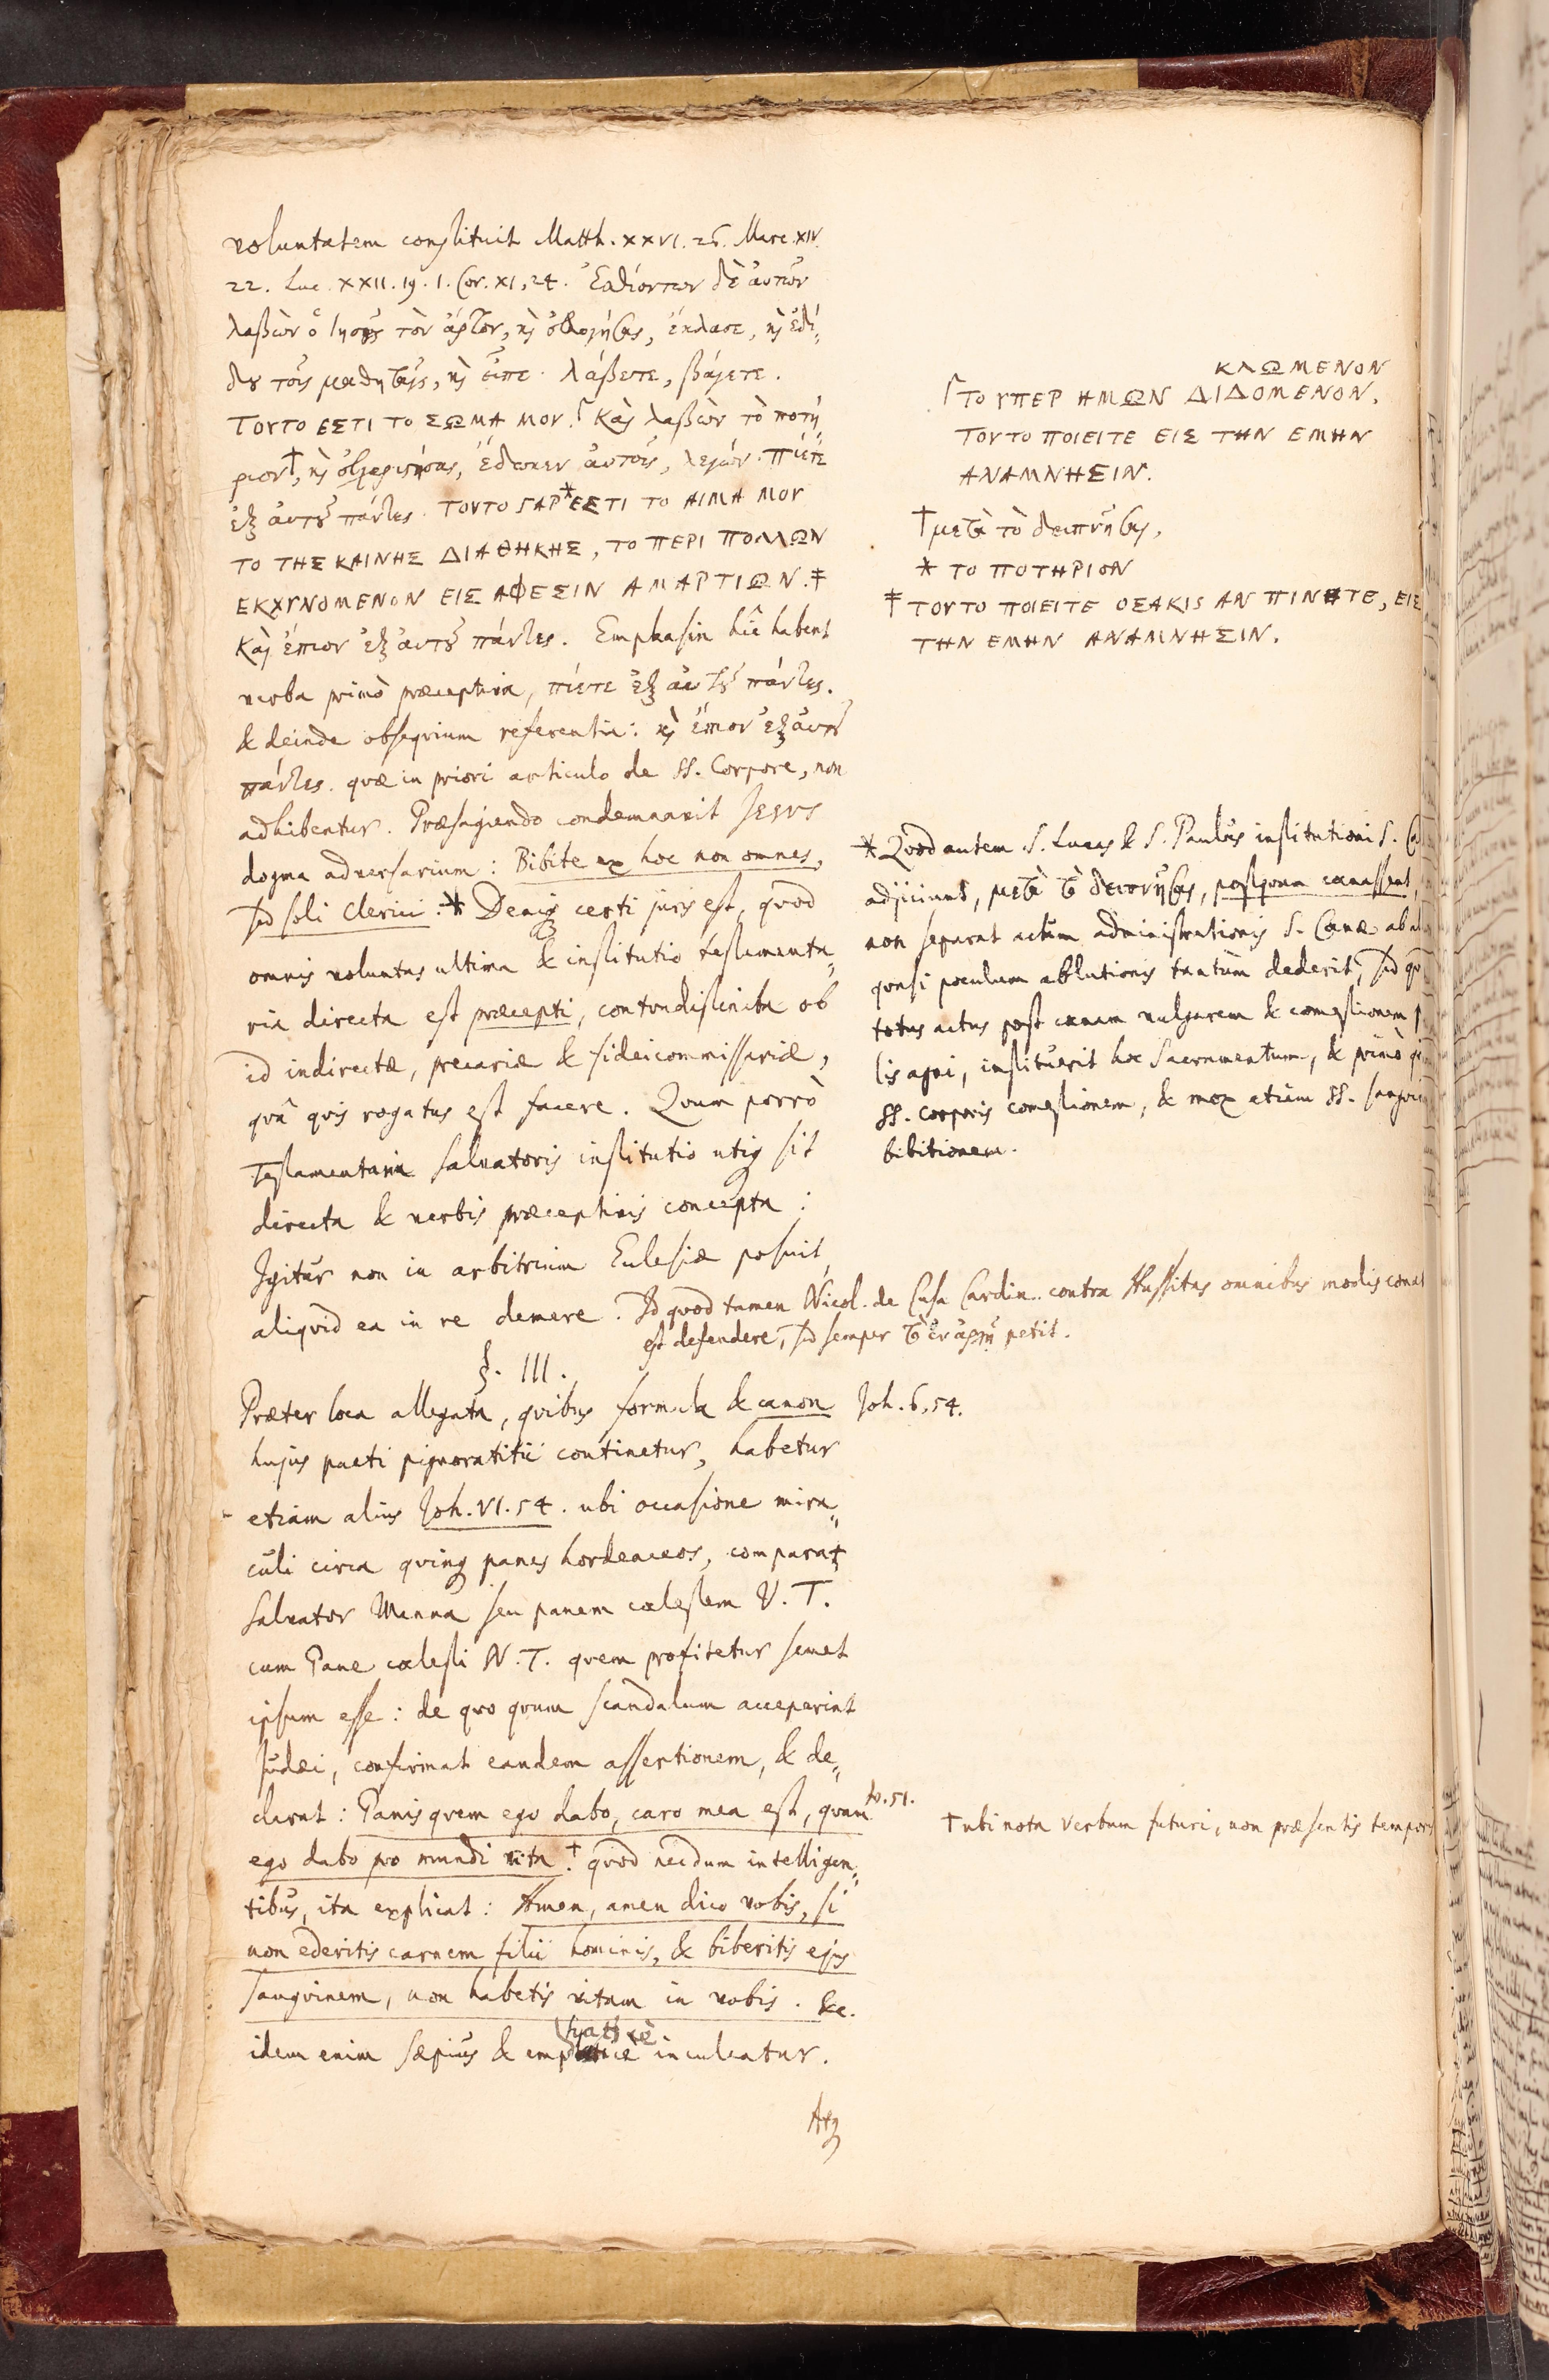 voluntatem constituit Matth. XXVI. 26. Marc. XIV.
22. Luc. XXII. 19. 1. Cor. XI, 24. Ἐσθιόντων δὲ αὐτῶν
λαβὼν ὁ Ἰησοῦς τὸν ἄρτον, κὶ εὐλογήσας, ἔκλασε, κὶ ἐδί„
δου τοῖς μαθηταῖς, κὶ εἶπε. λάβετε, φάγετε.
ΤΟΥΤΟ ΕΣΤΙ ΤΟ ΣΩΜΑ ΜΟΥ.⌈ Καὶ λαβὼν τὸ ποτή„
ριον†, κὶ εὐχαριστήσας, ἔδωκεν αὐτοῖς, λέγων. Πίετε
ἐξ αὐτοῦ πάντες. ΤΟΥΤΟ ΓΑΡ* ΕΣΤΙ ΤΟ ΑΙΜΑ ΜΟΥ
ΤΟ ΤΗΣ ΚΑΙΝΗΣ ΔΙΑΘΗΚΗΣ, ΤΟ ΠΕΡΙ ΠΟΛΛΩΝ
ΕΚΧΥΝΟΜΕΝΟΝ ΕΙΣ ΑΦΕΣΙΝ ΑΜΑΡΤΙΩΝ.‡
Καὶ ἔπιον ἐξ αὐτοῦ πάντες. Emphasin hîc habent
verba primò præceptiva, πίετε ἐξ αὐτοῦ πάντες.
& deinde obseqvium referentia: κὶ ἔπιον ἐξ αὐτοῦ
πάντες. qvæ in priori articulo de SS. Corpore, non
adhibentur. Præsagiendo condemnavit JESUS
dogma adversarium: Bibite ex hoc non omnes,
sed soli Clerici.* Deniq; certi juris est, qvod
omnis voluntas ultima & institutio testamenta„
ria directa est præcepti, contradistincta ob
id indirectæ, precariæ & fideicommissariæ,
qvâ qvis rogatus est facere. Qvum porrò
Testamentaria Salvatoris institutio utiq; sit
directa & verbis præceptivis concepta:
Igitur non in arbitrium Eclesiæ posuit,
aliqvid ea in re demere. Id qvod tamen Nicol. de Cusa Cardin. contra Hussitas omnibus modis conat
est defendere, sed semper τὸ ἐν ἀρχῇ petit.
⌈ΤΟ ΥΠΕΡ ΗΜΩΝ ΔΙΔΟΜΕΝΟΝ,
ΚΛΩΜΕΝΟΝ
ΤΟΥΤΟ ΠΟΙΕΙΤΕ ΕΙΣ ΤΗΝ ΕΜΗΝ
ΑΝΑΜΝΗΣΙΝ.
† μετὰ τὸ δειπνῆσαι,
* ΤΟ ΠΟΤΗΡΙΟΝ
‡ ΤΟΥΤΟ ΠΟΙΕΙΤΕ ΟΣΑΚΙΣ ΑΝ ΠΙΝΗΤΕ, ΕΙΣ
ΤΗΝ ΕΜΗΝ ΑΝΑΜΝΗΣΙΝ.
* Qvod autem S. Lucas & S. Paulus institutioni S.
adjiciunt, μετὰ τὸ δειπνῆσαι, postqvam cœnassent,
non separat actum administrationis S. Cœnæ ab
qvasi poculum ablutionis tantùm dederit, sed
totus actus post cœnam vulgarem & comestionem
lis agni, instituerit hoc Sacramentum, & primò
SS. Corporis comestionem, & mox etiam SS.
bibitionem.
§. III.
Præter loca allegata, qvibus formula & canon Joh. 6, 54.
hujus pacti pignoratitii continetur, habetur
etiam alius Joh. VI. 54. ubi occasione mira„
culi circa qvinq; panes hordeaceos, comparat
Salvator Manna seu panem cælestem V. T.
cum Pane cælesti N. T. qvem profitetur semet
ipsum esse: de qvo qvum scandalum acceperint
Judæi, confirmat eandem assertionem, & de„
clarat: Panis qvem ego dabo, caro mea est, qvam v. 51.
ego dabo pro mundi vita.† qvod necdum intelligen„
tibus, ita explicat: Amen, amen dico vobis, si
non ederitis carnem filii hominis, & biberitis ejus
sangvinem, non habetis vitam in vobis. &c.
idem enim sæpius & emphaticè inculcatur.
† ubi nota verbum futuri, non præsentis temporis
Atq;